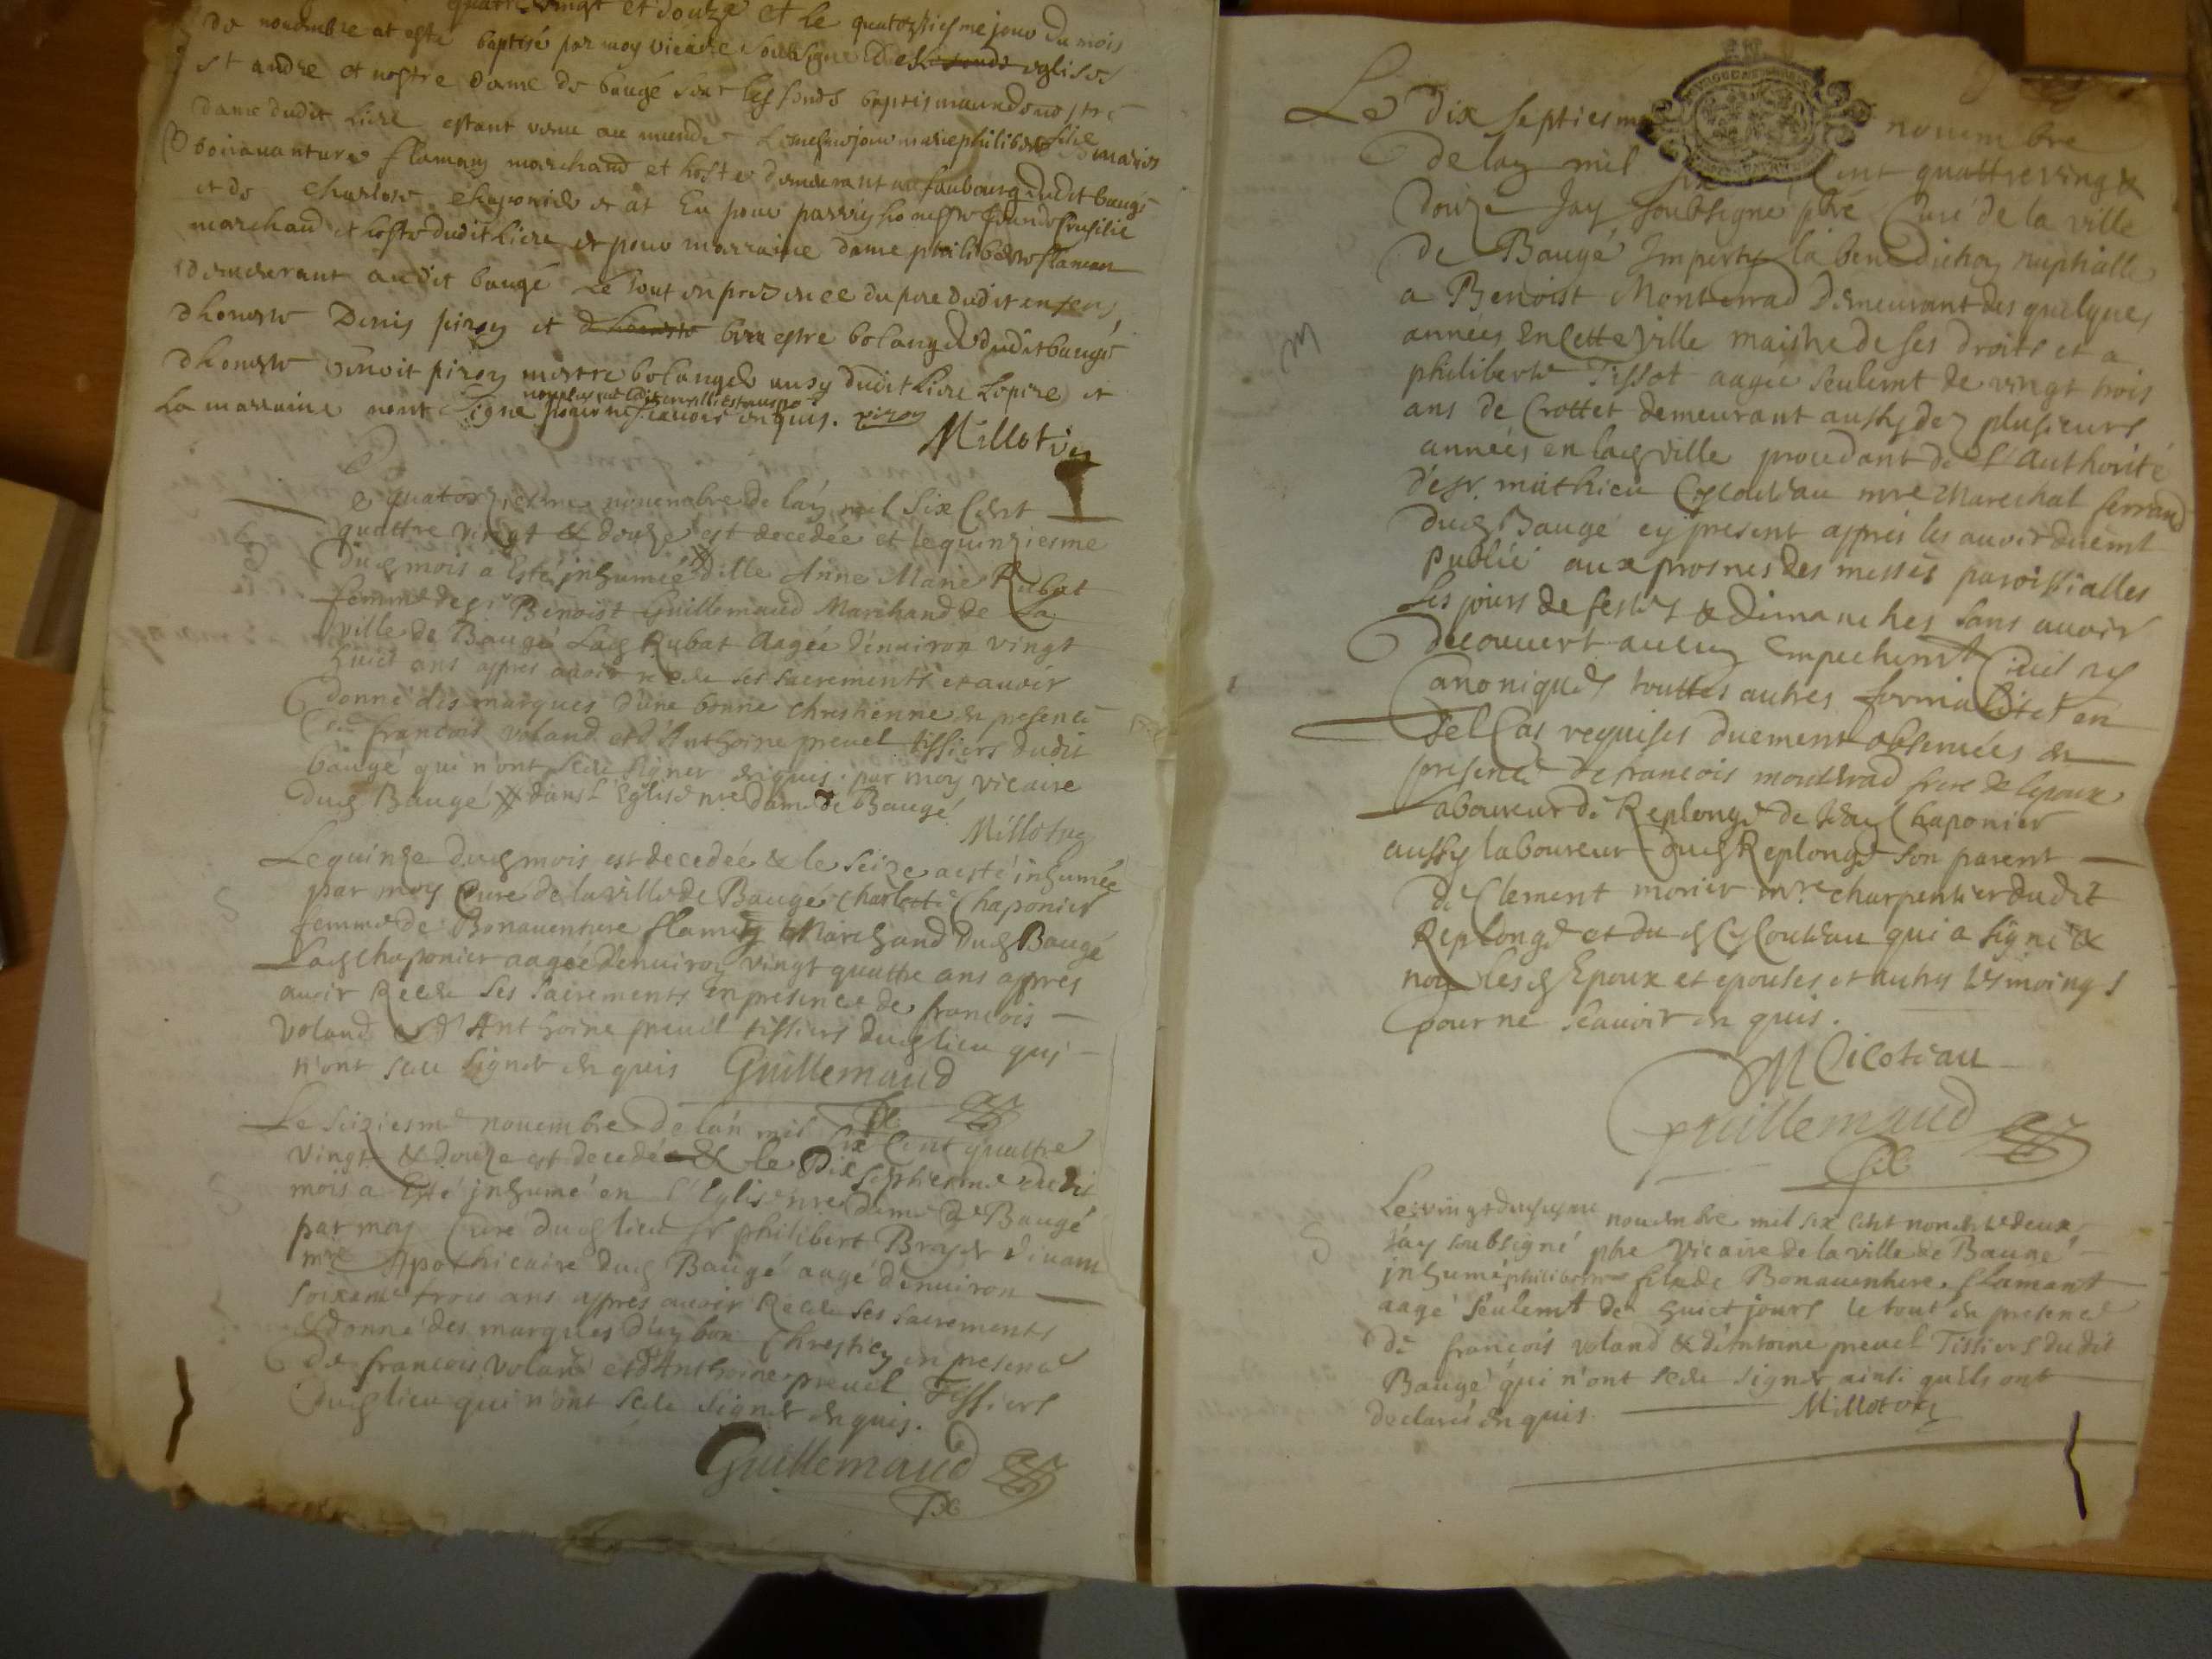 quatre vingt et douze et le quatorziesme jour du mois
de novembre at esté baptisé par moy vicaire soubsigné des eglises
st andre et nostre dame de baugé sur les fonds baptismaux de nostre
dame dudit lieu estant venue au monde le mesme jour marie philiberte fille
bonnavanture flamang marchand et hoste demeurant au faubourg dudit baugé
et de charlote chaponier et at eu pour parrin
marchand et hoste dudit lieu et pour marraine dame philiberte flaman
demeurant audit baugé le tout en presence du pere dudit enfens
dhoneste Denis piroy et boulange dudit baugé
dhoneste benoit piroy mestre bolanger ausy dudit lieu le pire et
la marraine nont signe pour ne scavoir enquis. piroy
Millot vic
Le quatorziesme novembre de lan mil six cent
quattre vingt & douze est decedée et le quinziesme
dud mois a esté inhumée dlle Anne Marie Rubat
femme de sr Benoist Guillemaud Marchand de la
ville de Baugé lad Rubat aagée d'environ vingt
huict ans appres avoir receu ses sacrements et avoir
donné des marques d'une bonne chrestienne en presence
de francois voland et d'Anthoine prevel tissiers dudit
baugé qui n'ont sceu signer enquis. par moy vicaire
dud Baugé dans l'Eglise nre dame de Baugé
Millot vic
Le quinze dud mois est decedée & le seize a esté inhumée
par moy Curé de la ville de Baugé Charlotte Chaponier
femme de Bonaventure flamang Marchand dud Baugé
lad chaponier aagée denviron vingt quattre ans appres
avoir Receu ses sacrements En presence de francois
voland et d'Anthoine prevel tissiers dud lieu qui
n'ont sceu signer enquis Guillemaud
Le seiziesme novembre de l'an mil six Cent quattre
vingt & douze est decedé & le Dix septiesme dudit
mois a Esté inhumé en l'Eglise nre dame de Baugé
par moy Curé dud lieu sr philibert
mre Apothicaire dud Baugé aagé denviron
soixante trois ans appres avoir Receu ses sacrements
& donné des marques d'un bon Chrestien en presence
de francois voland et d'Anthoine prevel Tissiers
dud lieu qui n'ont sceu signer enquis.
Guillemaud
Le dix septiesme novembre
de lan mil six Cent quattre vingt
douze Jay soubsigné pbre Curé de la ville
de Baugé Imparty la benediction nuptialle
a Benoist Monterrad demeurant des quelques
années En Cette ville maistre de ses droits et a
philiberte Tissot aagée seulemt de vingt trois
ans de Crottet demeurant aussy dez plusieurs
M
années en lad ville procedant de l'Authorité
de sr. mathieu Cicouteau mre Marechal ferrand
dud Baugé cy present appres les avoir duemt
publié aux prosnes des messes paroissialles
les jours de festes & dimanches sans avoir
decouvert aucun empechemt Civil ny
Canonique touttes autres formalites en
tel Cas requises duement observées en
presence de francois monterrad frere de lepoux
laboureur de Replonge de Chaponier
aussy laboureur dud Replonge son parent
de Clement morier mre charpentier dudit
Replonge et dud Cicouteau qui a signé &
non lesd Epoux et epouses et autres tesmoings
pour ne scavoir enquis.
M Cicoteau
Guillemaud
Le vingt deuxiesme novembre mil six cent nonante deux
Jay soubsigné pbre Vicaire de la ville de Baugé
inhumé philiberte fille de Bonaventure flamant
aagé seulemt de huict jours le tout en presence
de francois voland & d'Antoine prevel Tissiers dudit
Baugé qui n'ont sceu signer ainsi qu'ils ont
declaré enquis. Millot vic